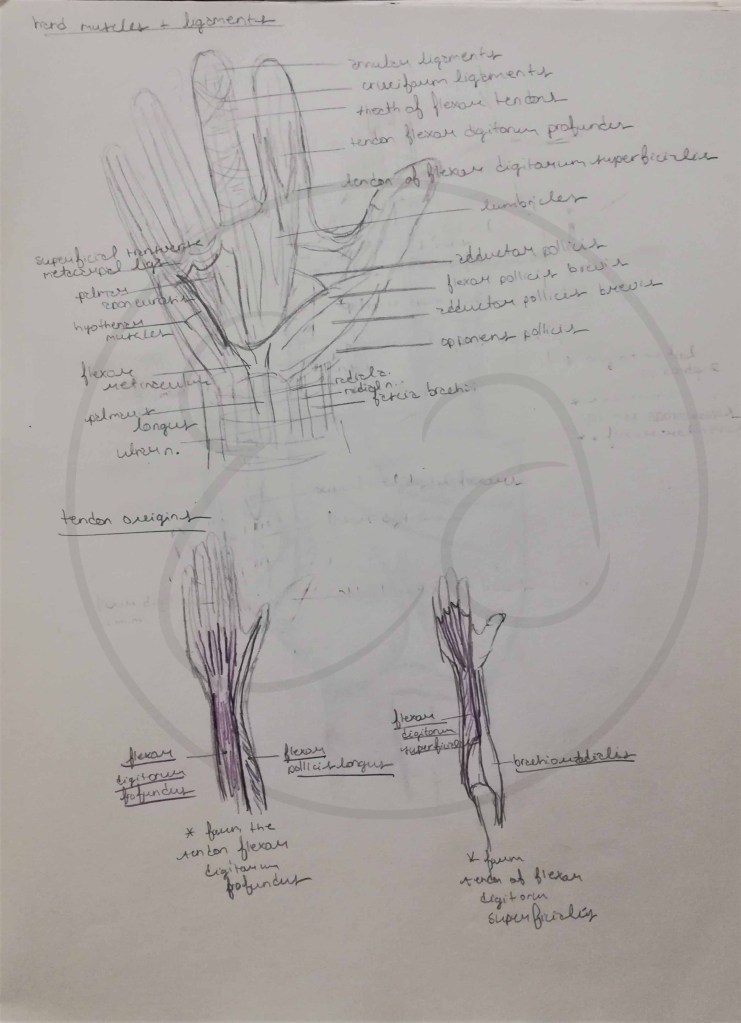 hand muscles + ligaments
annular ligaments
cruciform ligaments
sheath of flexor tendons
tendon flexor digitorum profundus
tendon of flexor digitorum superficialis
lumbricles
superficial transverse
metacarpal ligs
adductor pollicis
palmar
aponeurosis
flexor pollicis brevis
hypothenar
muscles
abductor pollicis brevis
opponens pollicis
flexor
retinaculum
radial a.
radial n.
fascia brachii
palmaris
longus
ulnar n.
tendon origins
flexor
digitorum
profundus
flexor
pollicis longus
* from the
tendon flexor
digitorum
profundus
flexor
digitorum
superficialis
brachioradialis
* from
tendon of flexor
digitorum
superficialis